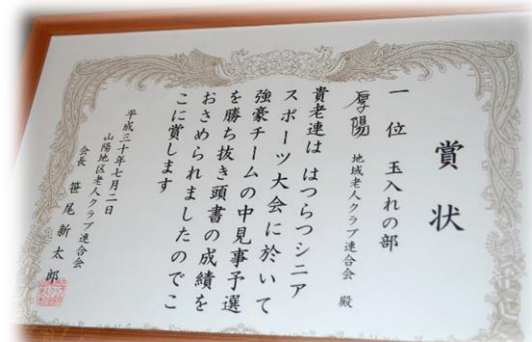 賞状
一位 玉入れの部
厚陽 地域老人クラブ連合会 殿
貴老連は はつらつシニア
スポーツ大会に於いて
強豪チームの中見事予選
を勝ち抜き頭書の成績を
おさめられましたのでこ
こに賞します
平成三十年七月二日
山陽地区老人クラブ連合会
会長 笹尾新太郎